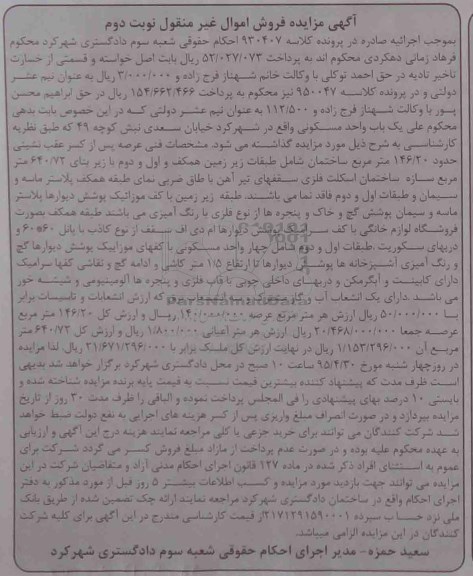 آگهی مزایده فروش اموال غیر منقول نوبت دوم
بموجب اجرائیه صادره در پرونده کلاسه ۹۳۰۴۰۷ احکام حقوقی شعبه سوم دادگستری شهرکرد محکوم
فرهاد زمانی دهکردی محکوم اند به پرداخت ۵۲/۰۲۷/۰۷۳ ریال بابت اصل خواسته و قسمتی از خسارت
تاخیر تادیه در حق احمد توکلی با وکالت خانم شهناز فرج زاده و ۳/۰۰۰/۰۰۰ ریال به عنوان نیم عشر
دولتی و در پرونده کلاسه ۹۵۰۰۴۷ نیز محکوم به پرداخت ۱۵۴/۶۶۲/۴۶۶ ریال در حق ابراهیم محسن
پور با وکالت شهناز فرج زاده و ۱۱۲/۵۰۰ به عنوان نیم عشر دولتی که در این خصوص بابت بدهی
محکوم علی یک باب واحد مسکونی واقع در شهرکرد خیابان سعدی نبش کوچه ۴۹ که طبق نظریه
کارشناسی به شرح ذیل مورد مزایده گذاشته می شود. مشخصات فنی عرصه پس از کسر عقب نشینی
حدود ۱۴۶/۲۰ متر مربع ساختمان شامل طبقات زیر زمین همکف و اول و دوم با زیر بنای ۶۴۰/۷۲ متر
مربع سازه ساختمان اسکلت فلزی سقفهای تیر آهن با طاق ضربی نمای طبقه همکف پلاستر ماسه و
سیمان و طبقات اول و دوم فاقد نما می باشند. طبقه زیر زمین با کف موزائیک پوشش دیوارها پلاستر
ماسه و سیمان پوشش گچ و خاک و پنجره ها از نوع فلزی با رنگ آمیزی می باشند طبقه همکف بصورت
فروشگاه لوازم خانگی با کف سرامیک پوشش دیوارها ام دی اف سقف از نوع کاذب با پانل ۶۰*۶۰ و
دربهای سکوریت .طبقات اول و دوم شامل چهار واحد مسکونی با کفهای موزاییک پوشش دیوارها گچ
و رنگ آمیزی آشپزخانه ها پوشش دیوارها تا ارتفاع ۱/۵ متر کاشی و ادامه گچ و نقاشی کفها سرامیک
دارای کابینت و آبگرمکن و دربهای داخلی چوبی با قاب فلزی و پنجره ها آلومینیومی و شیشه خور
می باشند .دارای یک انشعاب آب و گاز که ارزش انشعابات و تاسیسات برابر
با ۵۰/۰۰۰/۰۰۰ ریال ارزش هر متر مربع عرصه ۱۴۰/۰۰۰/۰۰۰ ریال و ارزش کل ۱۴۶/۲۰ متر مربع
عرصه جمعا ۲۰/۴۶۸/۰۰۰/۰۰۰ ریال .ارزش هر متر اعیانی ۱/۸۰۰/۰۰۰ ریال و ارزش کل ۶۴۰/۷۲ متر
مربع آن ۱/۱۵۳/۲۹۶/۰۰۰ ریال در نهایت ارزش کل ملک برابر با ۲۱/۶۷۱/۲۹۶/۰۰۰ ریال. لذا مزایده
در روز چهار شنبه مورخ ۹۵/۴/۳۰ ساعت ۱۰ صبح در محل دادگستری شهرکرد برگزار خواهد شد بدیهی
است ظرف مدت که پیشنهاد کننده بیشترین قیمت نسبت به قیمت پایه برنده مزایده شناخته شده و
بایستی ۱۰ درصد بهای پیشنهادی را فی المجلس پرداخت نموده و الباقی را ظرف مدت ۳۰ روز از تاریخ
مزایده بپردازد و در صورت انصراف مبلغ واریزی پس از کسر هزینه های اجرایی به نفع دولت ضبط خواهد
شد شرکت کنندگان می توانند برای خرید جزعی یا کلی مراجعه نمایند هزینه درج این آگهی و ارزیابی
به عهده محکوم علیه بوده و در صورت عدم پرداخت از مازاد مبلغ فروش کسر می گردد شرکت برای
عموم به استثنای افراد ذکر شده در ماده ۱۲۷ قانون اجرای احکام مدنی آزاد و متقاضیان شرکت در این
مزایده می توانند جهت بازدید مورد مزایده و کسب اطلاعات بیشتر ۵ روز قبل از مورد مذکور به دفتر
اجرای احکام واقع در ساختمان دادگستری شهرکرد مراجعه نمایند ارائه چک تضمین شده از طریق بانک
ملی نزد حساب سپرده ۲۱۷۱۲۹۱۵۹۰۰۰۱از قیمت کارشناسی مندرج در این آگهی برای کلیه شرکت
کنندگان در این مزایده الزامی میباشد.
سعید حمزه- مدیر اجرای احکام حقوقی شعبه سوم دادگستری شهرکرد